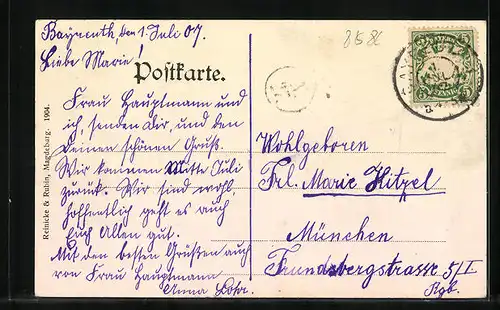 Bayreuth, den 1. Juli 07.
8586
Liebe Marie!
Postkarte.
Frau Hauptmann und
ich, senden Dir, und den
Deinen schönen Gruß.
Wir kommen Mitte Juli
zurück. Wir sind wohl,
hoffentlich geht es auch
Euch Allen gut.
Mit den besten Grüßen auch
von Frau Hauptmann
Anna
Reinicke & Rubin, Magdeburg. 1904.
Wohlgeboren
Frl. Marie Hitzel
München
Frundsbergstrasse 5/I